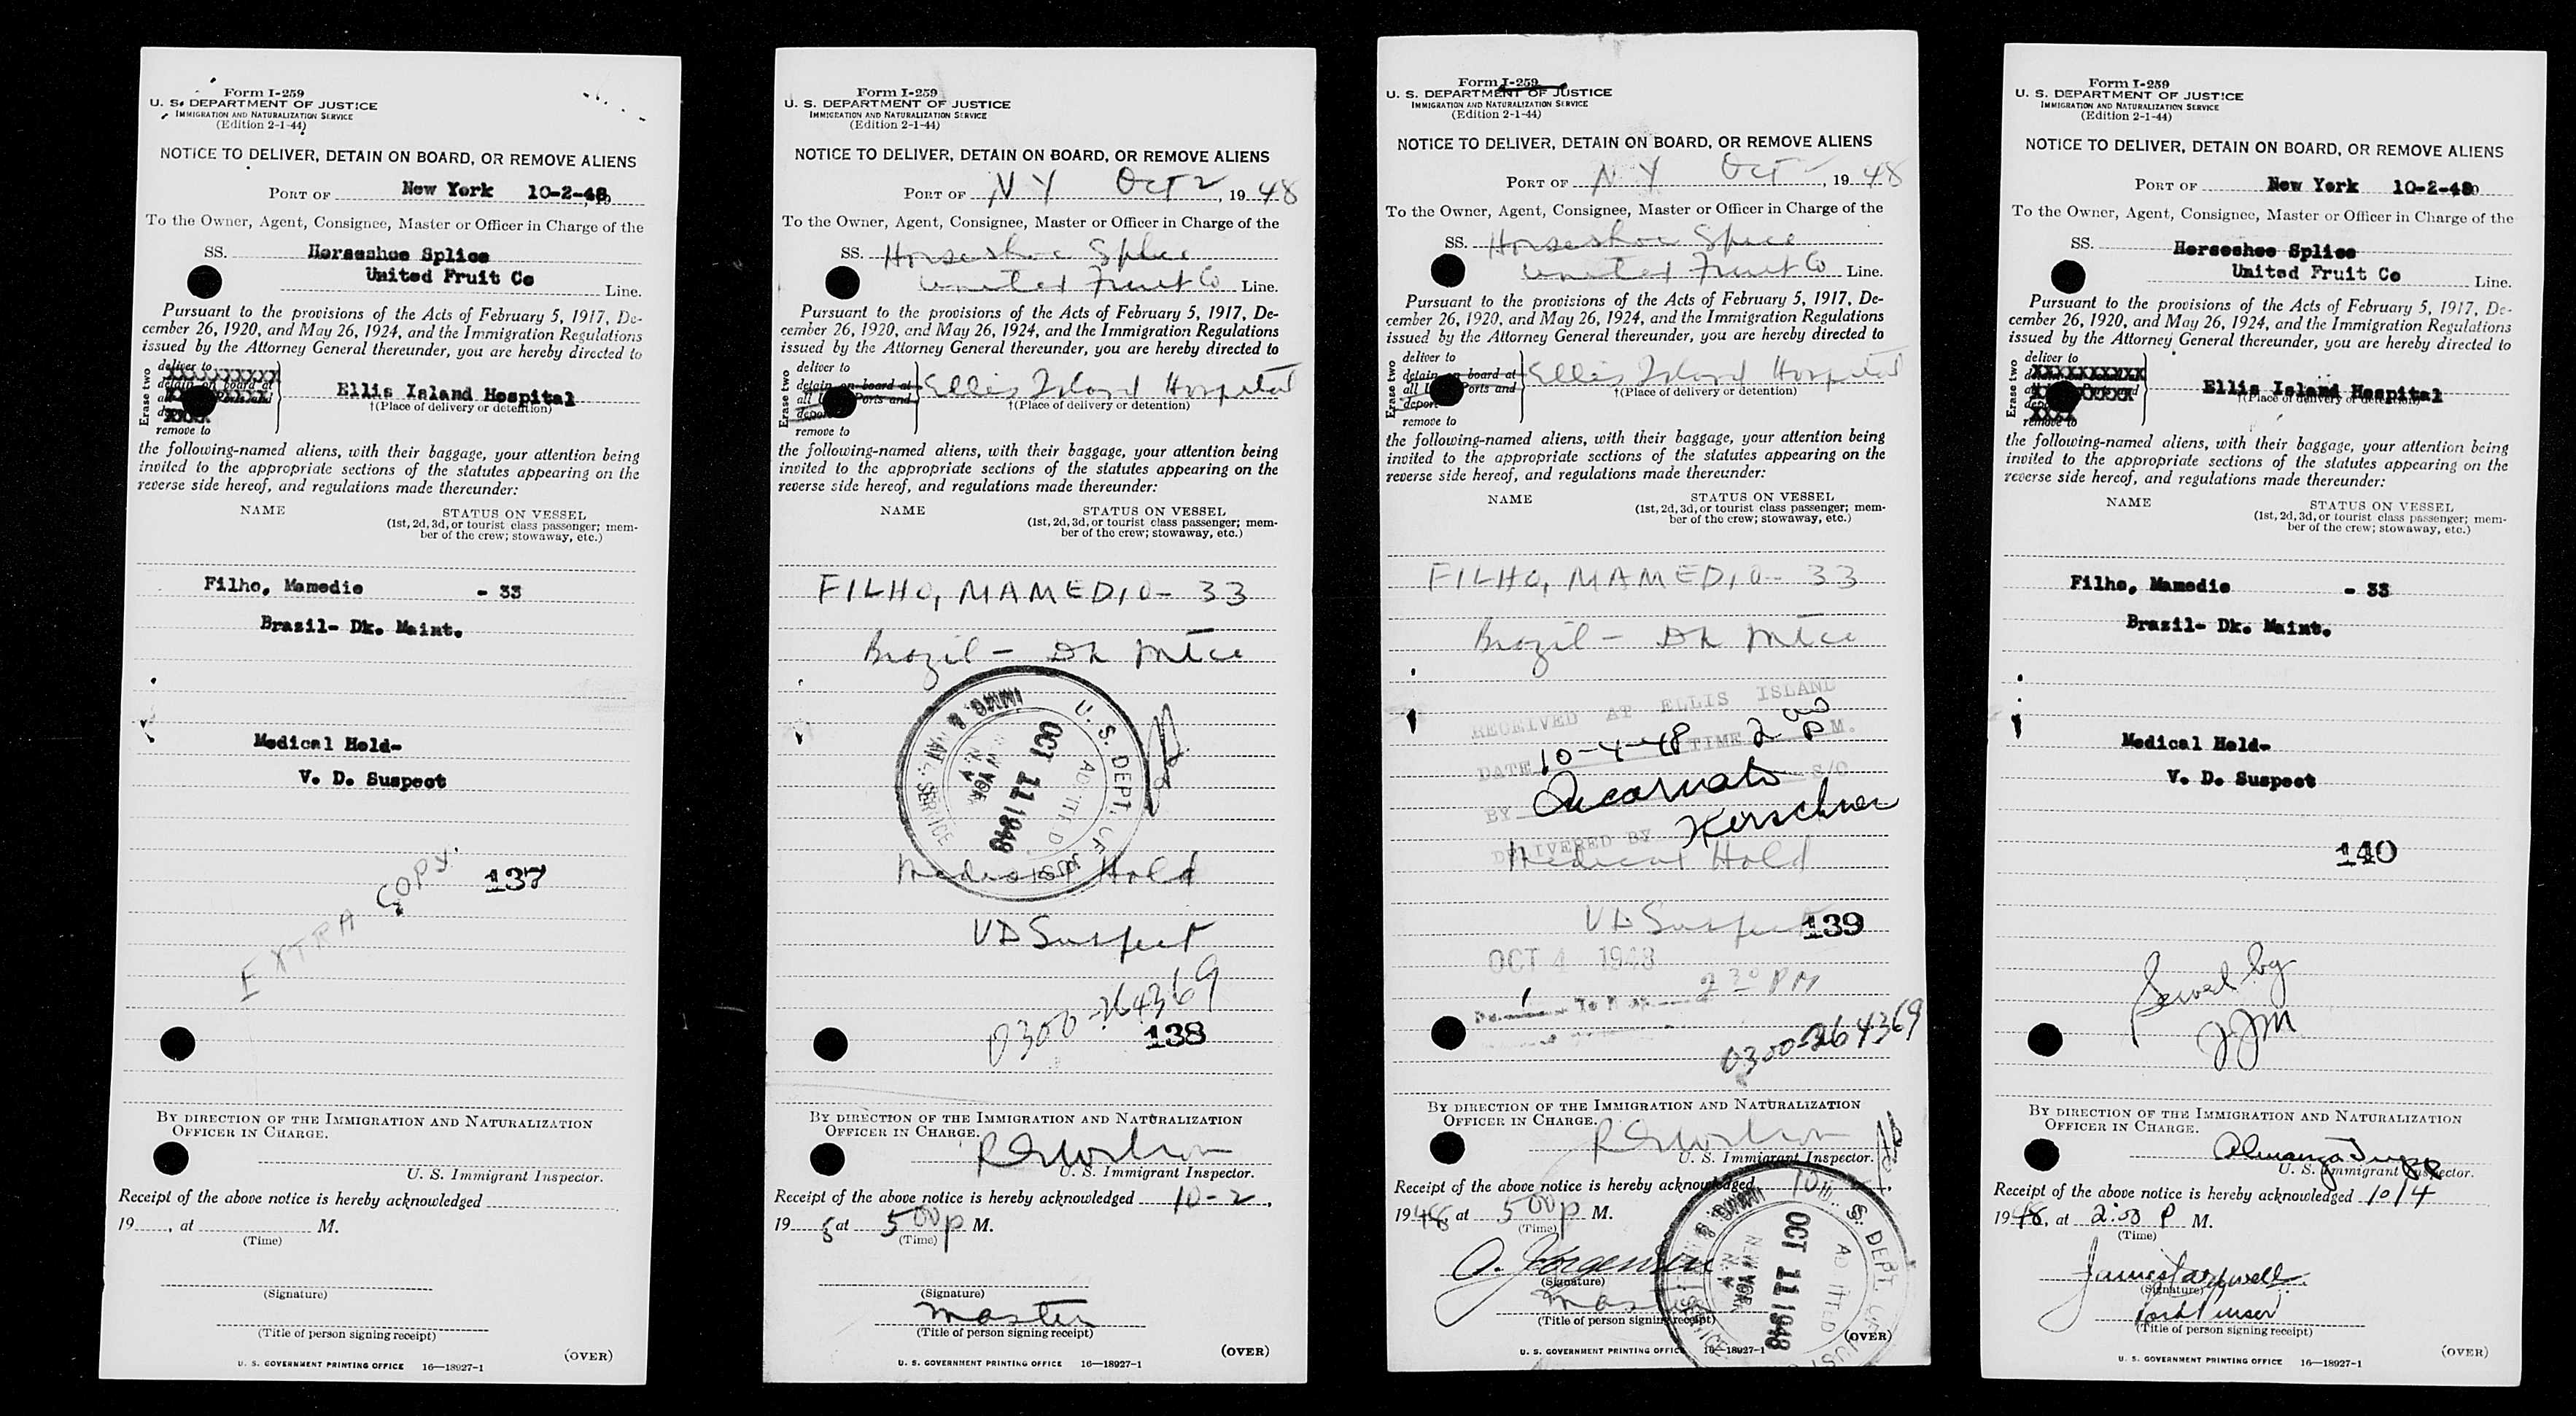 Form I-259
U. S. DEPARTMENT OF JUSTICE
IMMIGRATION AND NATURALIZATION SERVICE
(Edition 2-1-44)
NOTICE TO DELIVER, DETAIN ON BOARD, OR REMOVE ALIENS
PORT OF New York 10-2-48, 19
To the Owner, Agent, Consignee, Master or Officer in Charge of the
SS. Horseshoe Splice
United Fruit Co Line.
Pursuant to the provisions of the Acts of February 5, 1917, De-
cember 26, 1920, and May 26, 1924, and the Immigration Regulations
issued by the Attorney General thereunder, you are hereby directed to
Erase two
deliver to
detain on board at
remove to
Ellis Island Hospital
†(Place of delivery or detention)
the following-named aliens, with their baggage, your attention being
invited to the appropriate sections of the statutes appearing on the
reverse side hereof, and regulations made thereunder:
NAME STATUS ON VESSEL
(1st, 2d, 3d, or tourist class passenger; mem-
ber of the crew; stowaway, etc.)
Filho, Mamedio - 33
Brazil- Dk. Maint.
Medical Hold-
V. D. Suspect
EXTRA COPY.
137
BY DIRECTION OF THE IMMIGRATION AND NATURALIZATION
OFFICER IN CHARGE.
U. S. Immigrant Inspector.
Receipt of the above notice is hereby acknowledged
19 , at M.
(Time)
(Signature)
(Title of person signing receipt)
(OVER)
U. S. GOVERNMENT PRINTING OFFICE 16—18927-1
Form I-259
U. S. DEPARTMENT OF JUSTICE
IMMIGRATION AND NATURALIZATION SERVICE
(Edition 2-1-44)
NOTICE TO DELIVER, DETAIN ON BOARD, OR REMOVE ALIENS
PORT OF NY Oct 2, 19 48
To the Owner, Agent, Consignee, Master or Officer in Charge of the
SS. Horseshoe Splice
United Fruit Co Line.
Pursuant to the provisions of the Acts of February 5, 1917, De-
cember 26, 1920, and May 26, 1924, and the Immigration Regulations
issued by the Attorney General thereunder, you are hereby directed to
Erase two
deliver to
detain on board at
all Ports and
deport
remove to
Ellis Island Hospital
†(Place of delivery or detention)
the following-named aliens, with their baggage, your attention being
invited to the appropriate sections of the statutes appearing on the
reverse side hereof, and regulations made thereunder:
NAME STATUS ON VESSEL
(1st, 2d, 3d, or tourist class passenger; mem-
ber of the crew; stowaway, etc.)
FILHO, MAMEDIO- 33
Brazil - Dk mtce
U. S. DEPT. OF JUST
IMMIG. & NAT. SERVICE
OCT 11 1948
NEW YORK
N. Y.
Medical Hold
VD Suspect
0300-264369
138
BY DIRECTION OF THE IMMIGRATION AND NATURALIZATION
OFFICER IN CHARGE.
U. S. Immigrant Inspector.
Receipt of the above notice is hereby acknowledged 10-2,
19 8 at 5 00 p M.
(Time)
(Signature)
Master
(Title of person signing receipt)
(OVER)
U. S. GOVERNMENT PRINTING OFFICE 16—18927-1
Form I-259
U. S. DEPARTMENT OF JUSTICE
IMMIGRATION AND NATURALIZATION SERVICE
(Edition 2-1-44)
NOTICE TO DELIVER, DETAIN ON BOARD, OR REMOVE ALIENS
PORT OF NY Oct , 19 48
To the Owner, Agent, Consignee, Master or Officer in Charge of the
SS. Horseshoe Splice
United Fruit Co Line.
Pursuant to the provisions of the Acts of February 5, 1917, De-
cember 26, 1920, and May 26, 1924, and the Immigration Regulations
issued by the Attorney General thereunder, you are hereby directed to
Erase two
deliver to
detain on board at
all Ports and
deport
remove to
Ellis Island Hospital
†(Place of delivery or detention)
the following-named aliens, with their baggage, your attention being
invited to the appropriate sections of the statutes appearing on the
reverse side hereof, and regulations made thereunder:
NAME STATUS ON VESSEL
(1st, 2d, 3d, or tourist class passenger; mem-
ber of the crew; stowaway, etc.)
FILHO, MAMEDIO- 33
Brazil - Dk mtce
RECEIVED AT ELLIS ISLAND
DATE 10-4-48 TIME 2 00 P M.
BY S/O
DELIVERED BY Kerschner
Medical Hold
VD Suspect
139
OCT 4 1948
2 30 PM
0300-264369
BY DIRECTION OF THE IMMIGRATION AND NATURALIZATION
OFFICER IN CHARGE.
U. S. Immigrant Inspector.
Receipt of the above notice is hereby acknowledged 10
1948, at 5 00 p M.
(Time)
J. Jorgensen
(Signature)
Master
(Title of person signing receipt)
U. S. DEPT. OF JUST
OCT 11 1948
NEW YORK
N. Y.
(OVER)
U. S. GOVERNMENT PRINTING OFFICE 16—18927-1
Form I-259
U. S. DEPARTMENT OF JUSTICE
IMMIGRATION AND NATURALIZATION SERVICE
(Edition 2-1-44)
NOTICE TO DELIVER, DETAIN ON BOARD, OR REMOVE ALIENS
PORT OF New York 10-2-48
To the Owner, Agent, Consignee, Master or Officer in Charge of the
SS. Horseshoe Splice
United Fruit Co Line.
Pursuant to the provisions of the Acts of February 5, 1917, De-
cember 26, 1920, and May 26, 1924, and the Immigration Regulations
issued by the Attorney General thereunder, you are hereby directed to
Erase two
deliver to
remove to
Ellis Island Hospital
†(Place of delivery or detention)
the following-named aliens, with their baggage, your attention being
invited to the appropriate sections of the statutes appearing on the
reverse side hereof, and regulations made thereunder:
NAME STATUS ON VESSEL
(1st, 2d, 3d, or tourist class passenger; mem-
ber of the crew; stowaway, etc.)
Filho, Mamedio - 33
Brazil- Dk. Maint.
Medical Hold-
V. D. Suspect
140
Served by
JJM
BY DIRECTION OF THE IMMIGRATION AND NATURALIZATION
OFFICER IN CHARGE.
U. S. Immigrant Inspector.
Receipt of the above notice is hereby acknowledged 10/4
1948, at 2:00 P M.
(Time)
(Signature)
(Title of person signing receipt)
(OVER)
U. S. GOVERNMENT PRINTING OFFICE 16—18927-1